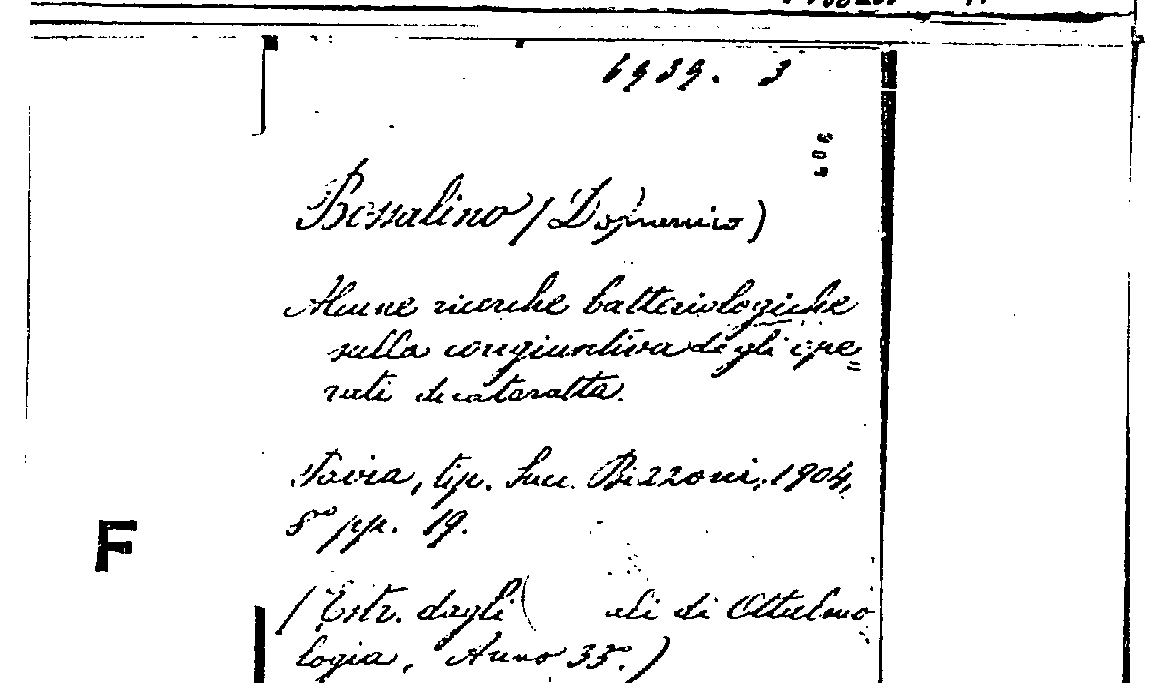 6939. 3
Bossalino (Domenico)
Alcune ricerche batteriologiche
sulla congiuntiva degli ope=
rati di cataratta.
Pavia, tip. Succ. Bizzoni, 1904,
8º pp. 19.
F
(Estr. dagli ali di Ottalmo
logia, Anno 33º.)